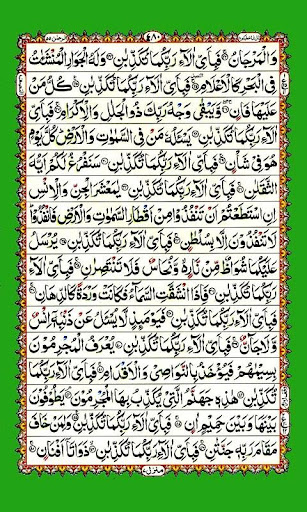 وَالْمَرْجَانُ ۝ فَبِاَىِّ اٰلَآءِ رَبِّكُمَا تُكَذِّبٰنِ ۝ وَلَهُ الْجَوَارِ الْمُنْشَئٰتُ
فِى الْبَحْرِ كَالْاَعْلَامِ ۝ فَبِاَىِّ اٰلَآءِ رَبِّكُمَا تُكَذِّبٰنِ ۝ كُلُّ مَنْ
عَلَيْهَا فَانٍ ۝ وَّيَبْقٰى وَجْهُ رَبِّكَ ذُو الْجَلٰلِ وَالْاِكْرَامِ ۝ فَبِاَىِّ
اٰلَآءِ رَبِّكُمَا تُكَذِّبٰنِ ۝ يَسْئَلُهٗ مَنْ فِى السَّمٰوٰتِ وَالْاَرْضِ ؕ كُلَّ يَوْمٍ
هُوَ فِىْ شَاْنٍ ۝ فَبِاَىِّ اٰلَآءِ رَبِّكُمَا تُكَذِّبٰنِ ۝ سَنَفْرُغُ لَكُمْ اَيُّهَ
الثَّقَلٰنِ ۝ فَبِاَىِّ اٰلَآءِ رَبِّكُمَا تُكَذِّبٰنِ ۝ يٰمَعْشَرَ الْجِنِّ وَالْاِنْسِ
اِنِ اسْتَطَعْتُمْ اَنْ تَنْفُذُوْا مِنْ اَقْطَارِ السَّمٰوٰتِ وَالْاَرْضِ فَانْفُذُوْا ؕ
لَا تَنْفُذُوْنَ اِلَّا بِسُلْطٰنٍ ۝ فَبِاَىِّ اٰلَآءِ رَبِّكُمَا تُكَذِّبٰنِ ۝ يُرْسَلُ
عَلَيْكُمَا شُوَاظٌ مِّنْ نَّارٍ ۙ وَّنُحَاسٌ فَلَا تَنْتَصِرٰنِ ۝ فَبِاَىِّ اٰلَآءِ
رَبِّكُمَا تُكَذِّبٰنِ ۝ فَاِذَا انْشَقَّتِ السَّمَآءُ فَكَانَتْ وَرْدَةً كَالدِّهَانِ ۝
فَبِاَىِّ اٰلَآءِ رَبِّكُمَا تُكَذِّبٰنِ ۝ فَيَوْمَئِذٍ لَّا يُسْئَلُ عَنْ ذَنْۢبِهٖۤ اِنْسٌ
وَّلَا جَآنٌّ ۝ فَبِاَىِّ اٰلَآءِ رَبِّكُمَا تُكَذِّبٰنِ ۝ يُعْرَفُ الْمُجْرِمُوْنَ
بِسِيْمٰهُمْ فَيُؤْخَذُ بِالنَّوَاصِىْ وَالْاَقْدَامِ ۝ فَبِاَىِّ اٰلَآءِ رَبِّكُمَا
تُكَذِّبٰنِ ۝ هٰذِهٖ جَهَنَّمُ الَّتِىْ يُكَذِّبُ بِهَا الْمُجْرِمُوْنَ ۝ يَطُوْفُوْنَ
بَيْنَهَا وَبَيْنَ حَمِيْمٍ اٰنٍ ۝ فَبِاَىِّ اٰلَآءِ رَبِّكُمَا تُكَذِّبٰنِ ۝ وَلِمَنْ خَافَ
مَقَامَ رَبِّهٖ جَنَّتٰنِ ۝ فَبِاَىِّ اٰلَآءِ رَبِّكُمَا تُكَذِّبٰنِ ۝ ذَوَاتَاۤ اَفْنَانٍ ۝